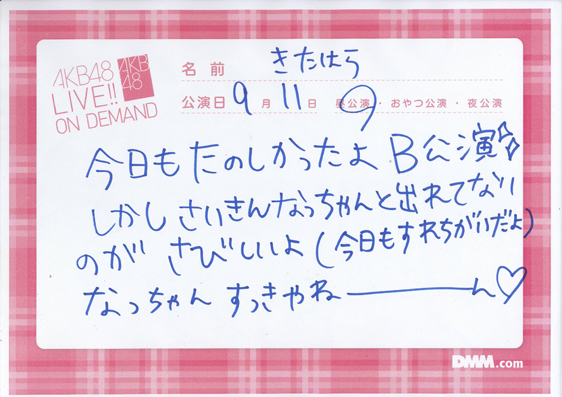 AKB48
LIVE!!
ON DEMAND
AKB
48
名前 きたはら
公演日 9月 11日 昼公演・おやつ公演・夜公演
今日もたのしかったよB公演☆
しかしさいきんなっちゃんと出れてない
のが さびしいよ(今日もすれちがいだよ)
なっちゃん すっきやねーーーん♡
DMM.com